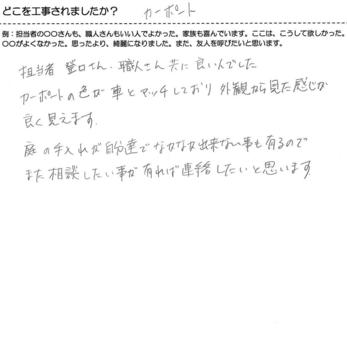 どこを工事されましたか?　カーポート
例:担当者の〇〇さんも、職人さんもいい人でよかった。家族も喜んでいます。ここは、こうして欲しかった。
〇〇がよくなかった。思ったより、綺麗になりました。また、友人を呼びたいと思います。
担当者 望口さん、職人さん共に良いんでした
カーポートの色が車とマッチしており外観から見た感じが
良く見えます.
庭の手入れが自分達でなかなか出来ない事も有るので
また相談したい事が有れば連絡したいと思います